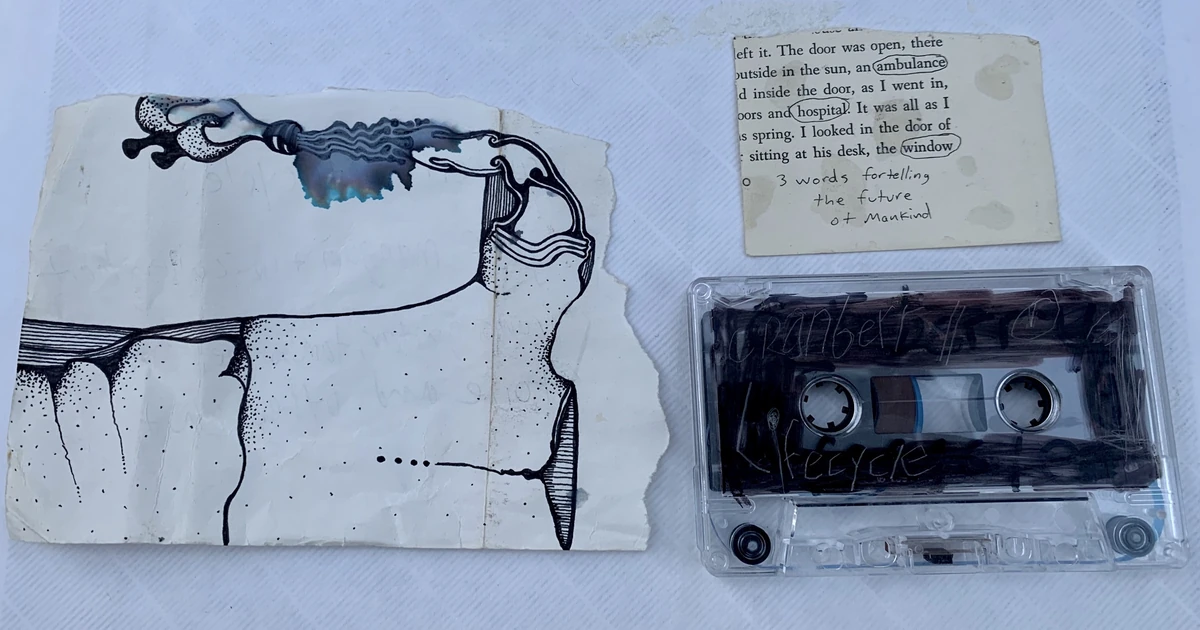 eft it. The door was open, there
outside in the sun, an ambulance
d inside the door, as I went in,
oors and hospital. It was all as I
s spring. I looked in the door of
sitting at his desk, the window
o 3 words fortelling
the future
of Mankind
CRanberry
Lifecycle